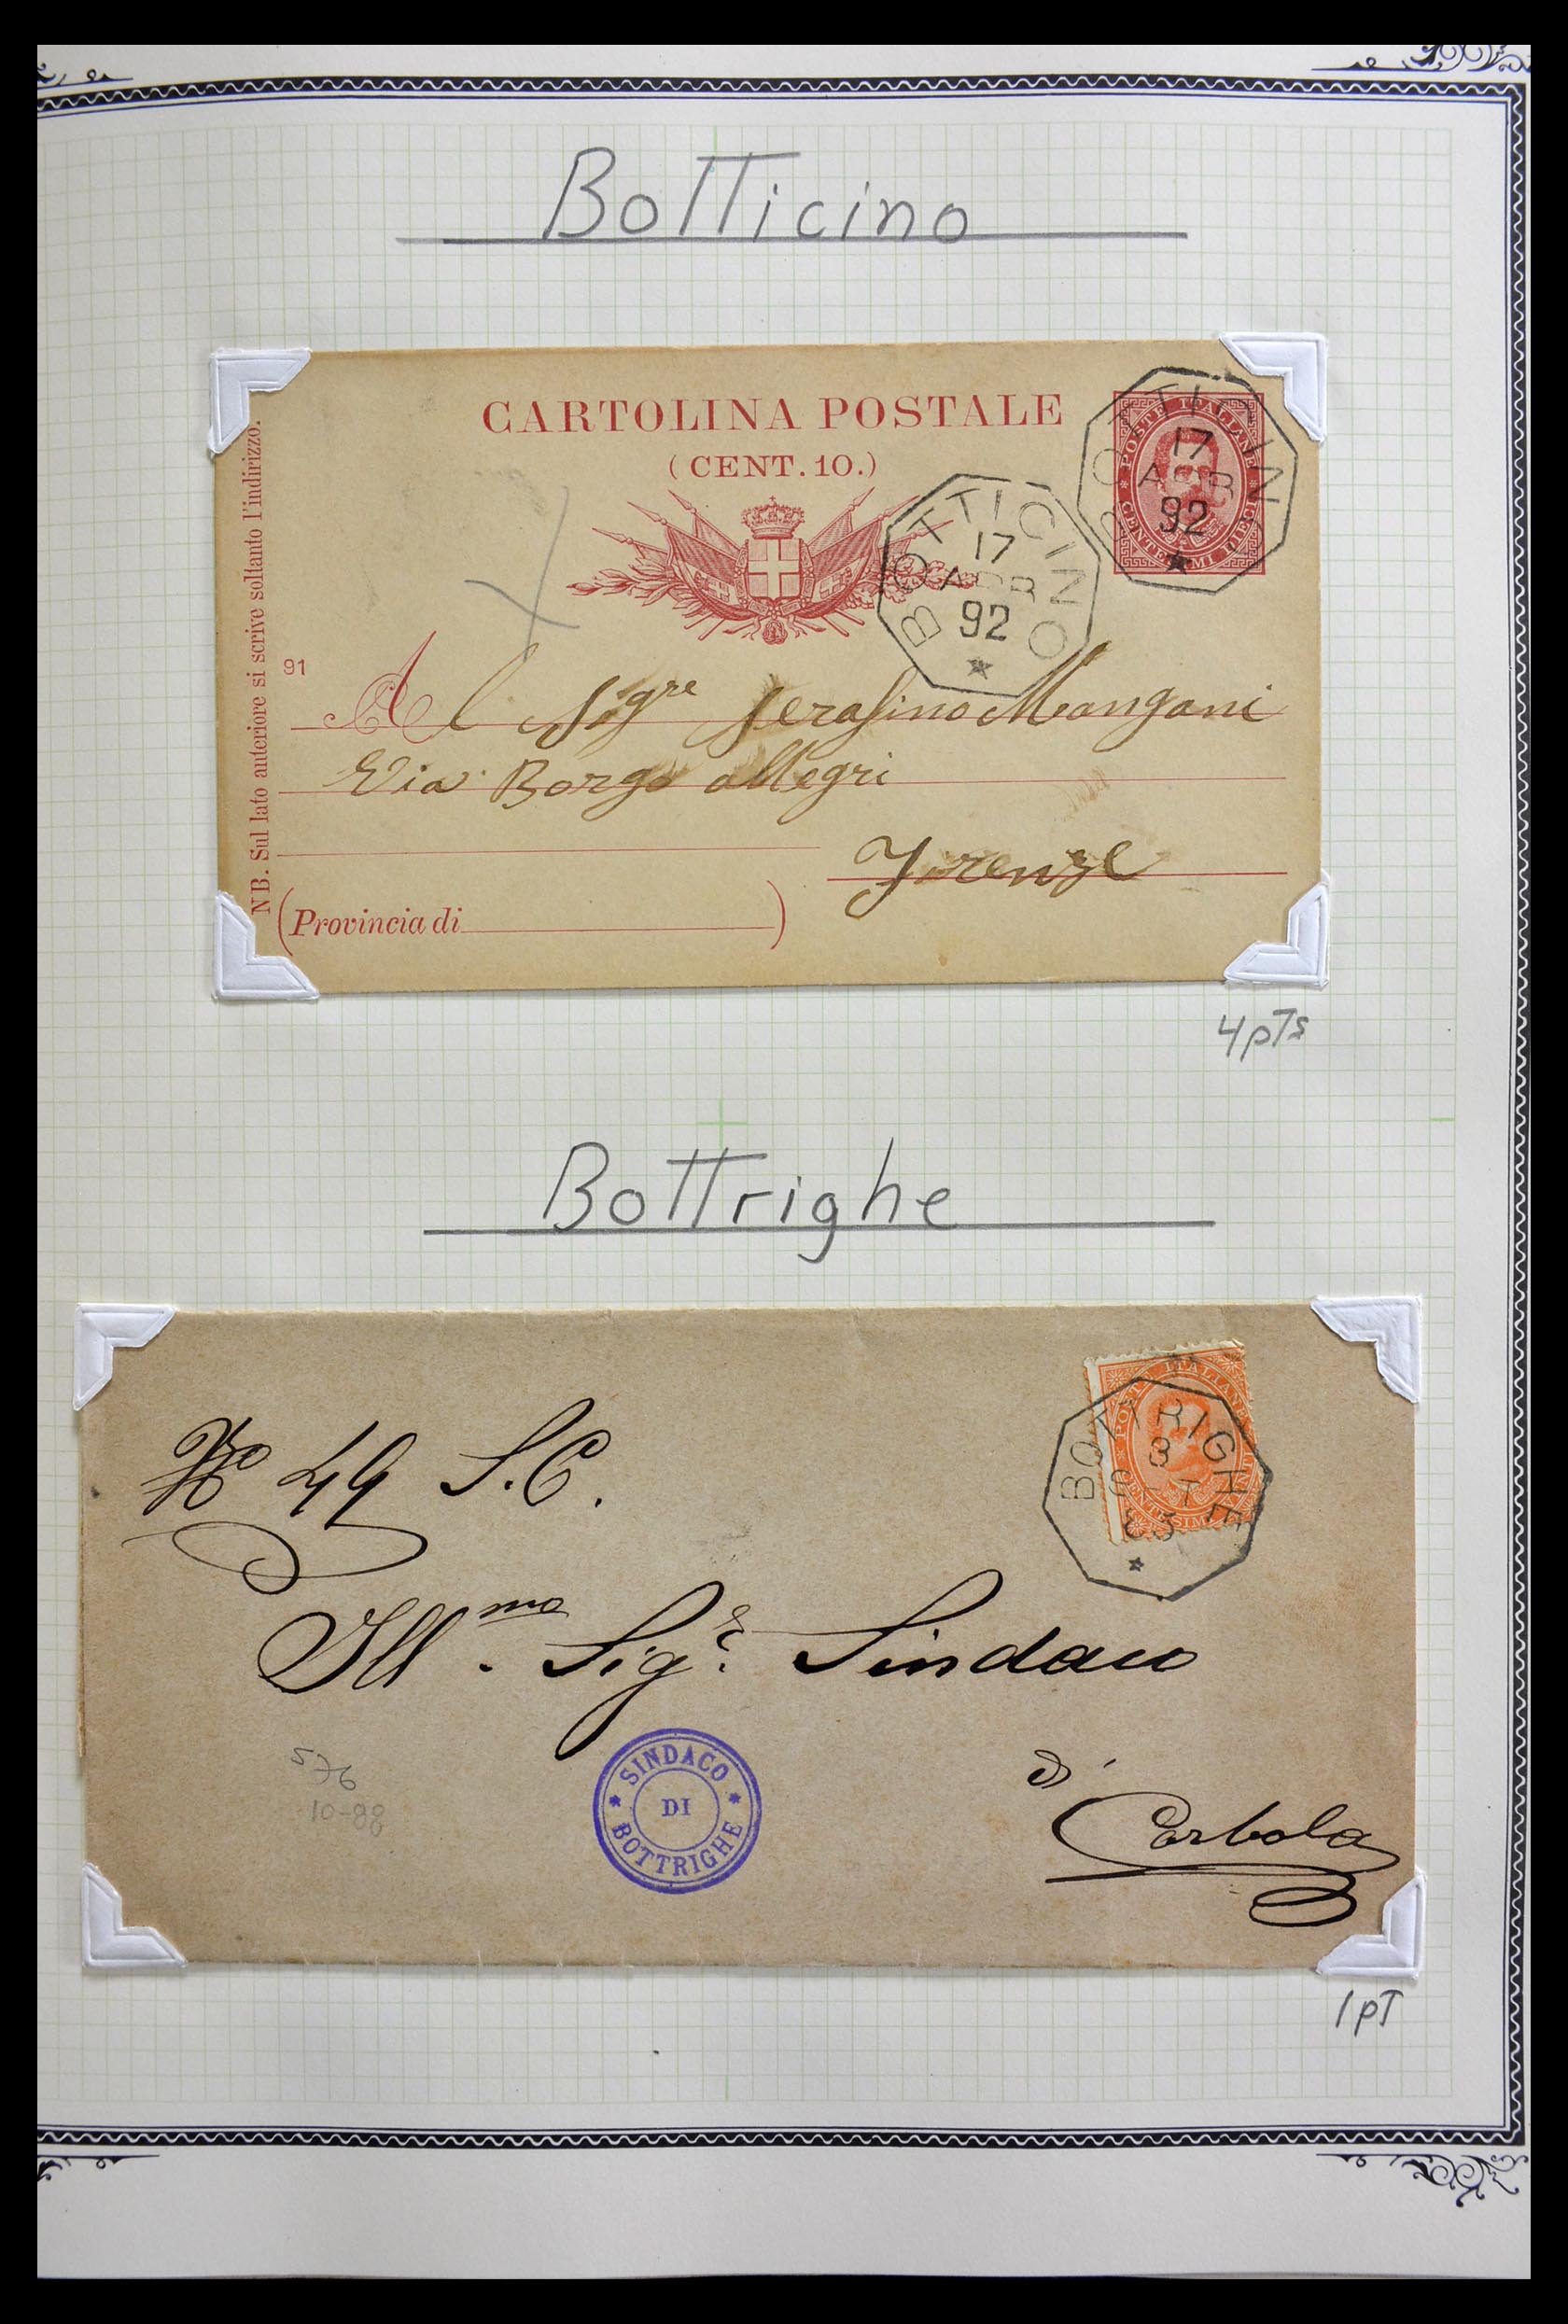 Botticino
CARTOLINA POSTALE
(CENT. 10.)
POSTE ITALIANE
CENTESIMI DIECI
BOTTICINO
17
APR
92
BOTTICINO
17
APR
92
NB. Sul lato anteriore si scrive soltanto l'indirizzo.
91
Al Sigre Serafino Mangani
Via Borgo allegri
Firenze
(Provincia di )
4pTs
Bottrighe
POSTE ITALIANE
CENTESIMI
BOTTRIGHE
No 49 S.C.
Illmo. Sigr. Sindaco
di
Corbola
SINDACO
DI
BOTTRIGHE
576
10-88
1pT